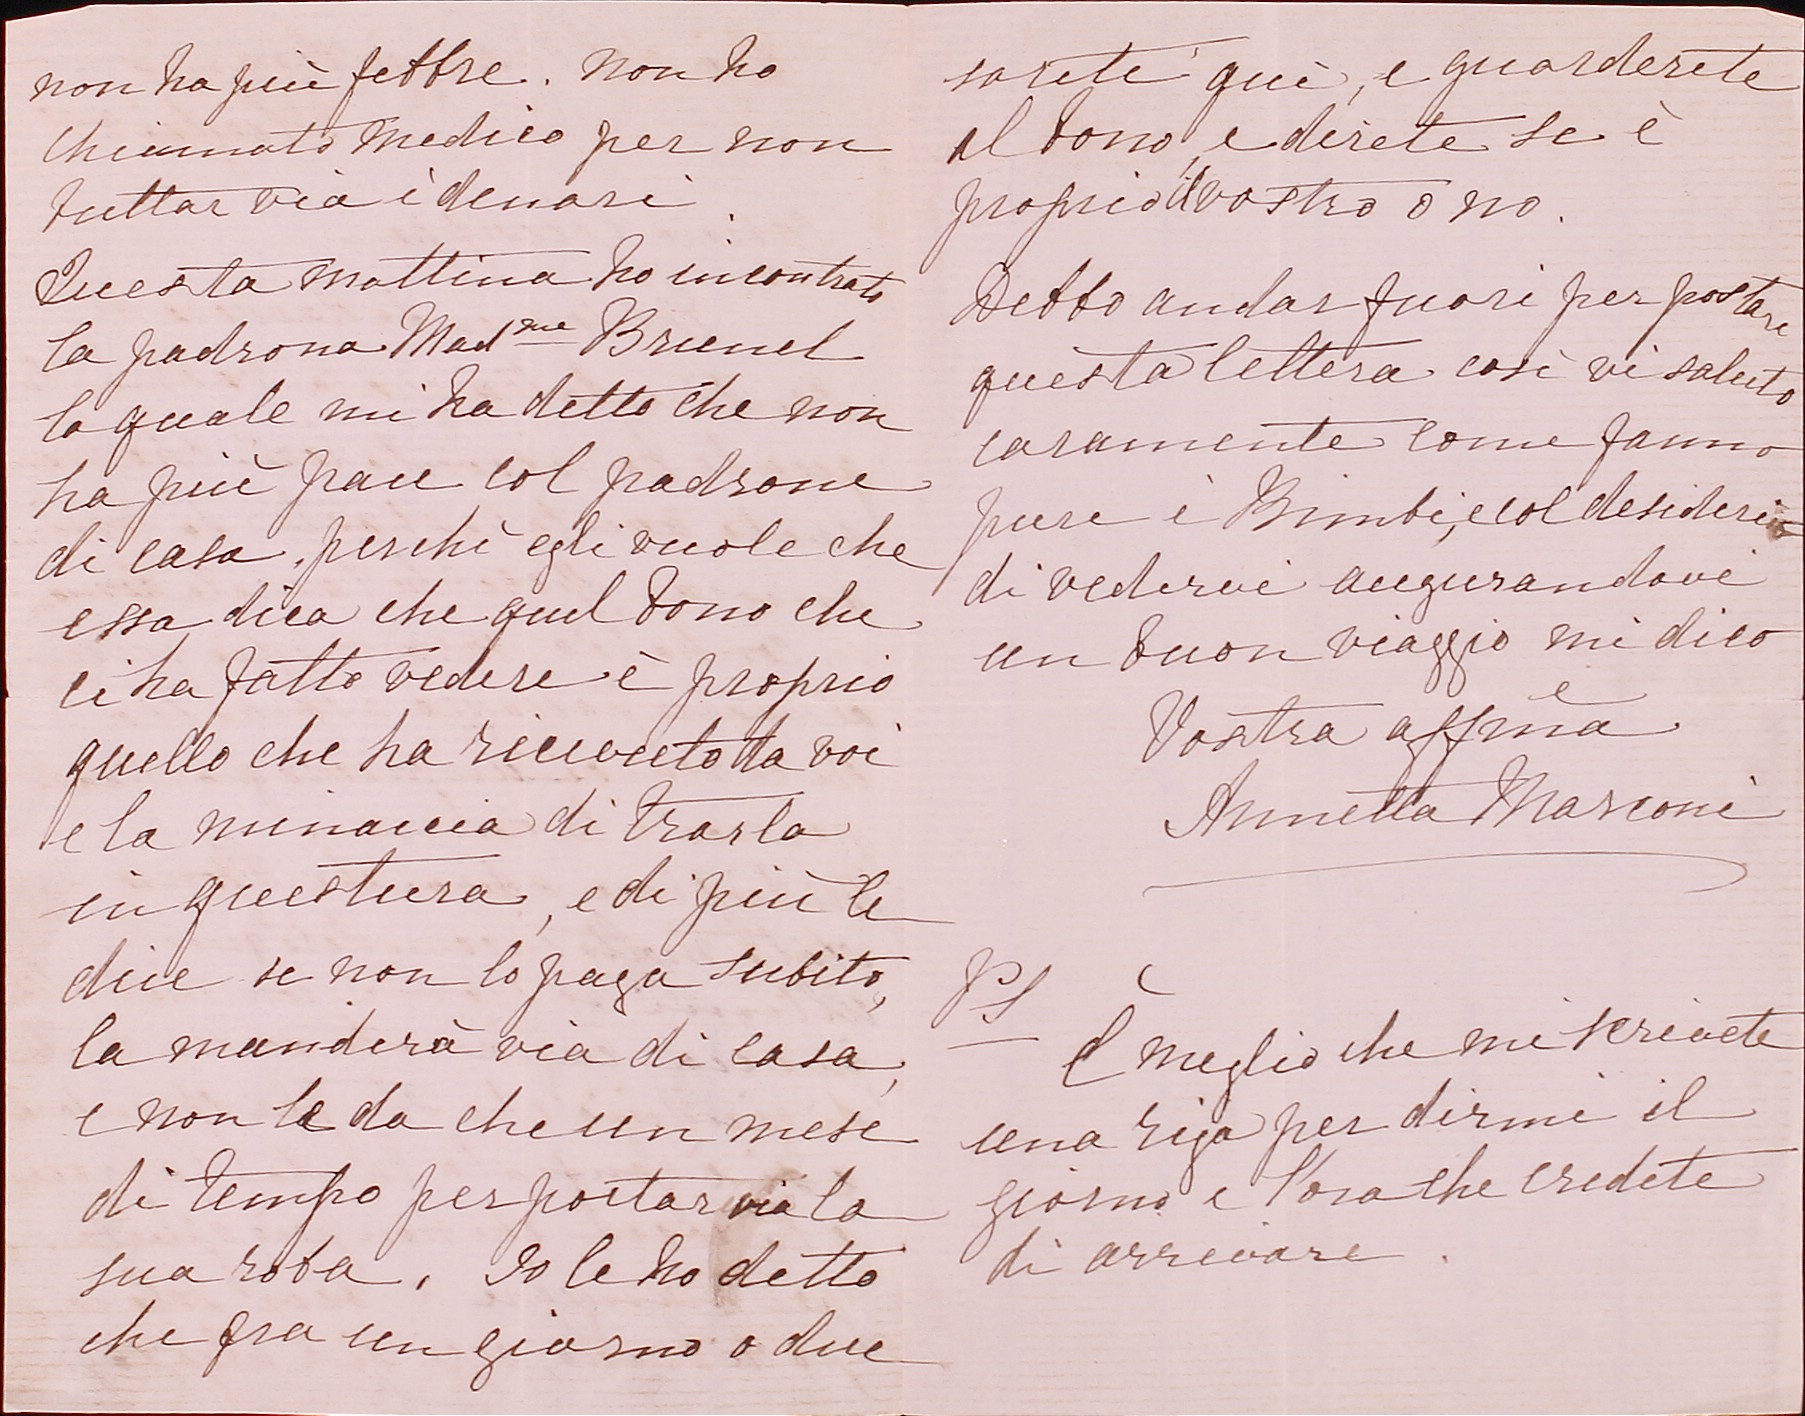 non ha più febbre. Non ho
chiamato medico per non
buttar via i denari.
Questa mattina ho incontrato
la padrona Mad.me Brunel
la quale mi ha detto che non
ha più pace col padrone
di casa, perchè egli vuole che
essa dica che quel bono che
ci ha fatto vedere è proprio
quello che ha ricevuto da voi
e la minaccia di trarla
in questura, e di più le
dice se non lo paga subito,
la manderà via di casa,
e non le da che un mese
di tempo per portar via la
sua roba. Io le ho detto
che fra un giorno o due
sarete quì, e guarderete
il bono, e direte se è
proprio il vostro o no.
Debbo andar fuori per postare
questa lettera così vi saluto
caramente come fanno
pure i Bimbi, e col desiderio
di vedervi augurandovi
un buon viaggio mi dico
Vostra affma
Annetta Marconi
PS
È meglio che mi scrivete
una riga per dirmi il
giorno e l'ora che credete
di arrivare.